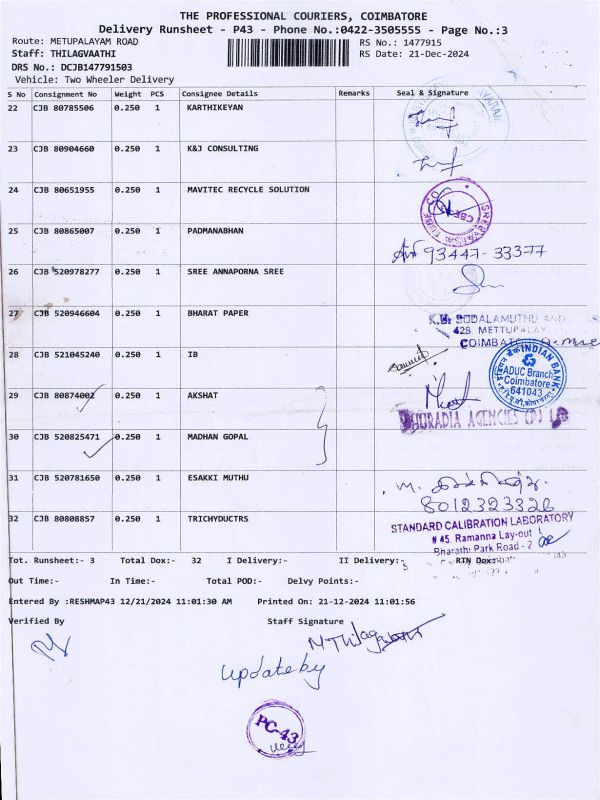 THE PROFESSIONAL COURIERS, COIMBATORE
Delivery Runsheet - P43 - Phone No.:0422-3505555 - Page No.:3
Route: METUPALAYAM ROAD RS No.: 1477915
Staff: THILAGVAATHI RS Date: 21-Dec-2024
DRS No.: DCJB147791503
Vehicle: Two Wheeler Delivery
S No Consignment No Weight PCS Consignee Details Remarks Seal & Signature
22 CJB 80785506 0.250 1 KARTHIKEYAN
23 CJB 80904660 0.250 1 K&J CONSULTING
24 CJB 80651955 0.250 1 MAVITEC RECYCLE SOLUTION
25 CJB 80865007 0.250 1 PADMANABHAN
93447-33377
26 CJB 520978277 0.250 1 SREE ANNAPORNA SREE
27 CJB 520946604 0.250 1 BHARAT PAPER
42B METTUPALAY
COIMBAT
28 CJB 521045240 0.250 1 IB
INDIAN BANK
ADUC Branch
Coimbatore
641043
29 CJB 80874002 0.250 1 AKSHAT
AGENCIES (P) L
30 CJB 520825471 0.250 1 MADHAN GOPAL
31 CJB 520781650 0.250 1 ESAKKI MUTHU
8012323326
32 CJB 80808857 0.250 1 TRICHYDUCTRS
STANDARD CALIBRATION LABORATORY
# 45, Ramanna Lay-out
Bharathi Park Road - 2
Tot. Runsheet:- 3 Total Dox:- 32 I Delivery:- II Delivery:- RTN Dox:-
Out Time:- In Time:- Total POD:- Delvy Points:-
Entered By :RESHMAP43 12/21/2024 11:01:30 AM Printed On: 21-12-2024 11:01:56
Verified By Staff Signature
Update by
PC-43